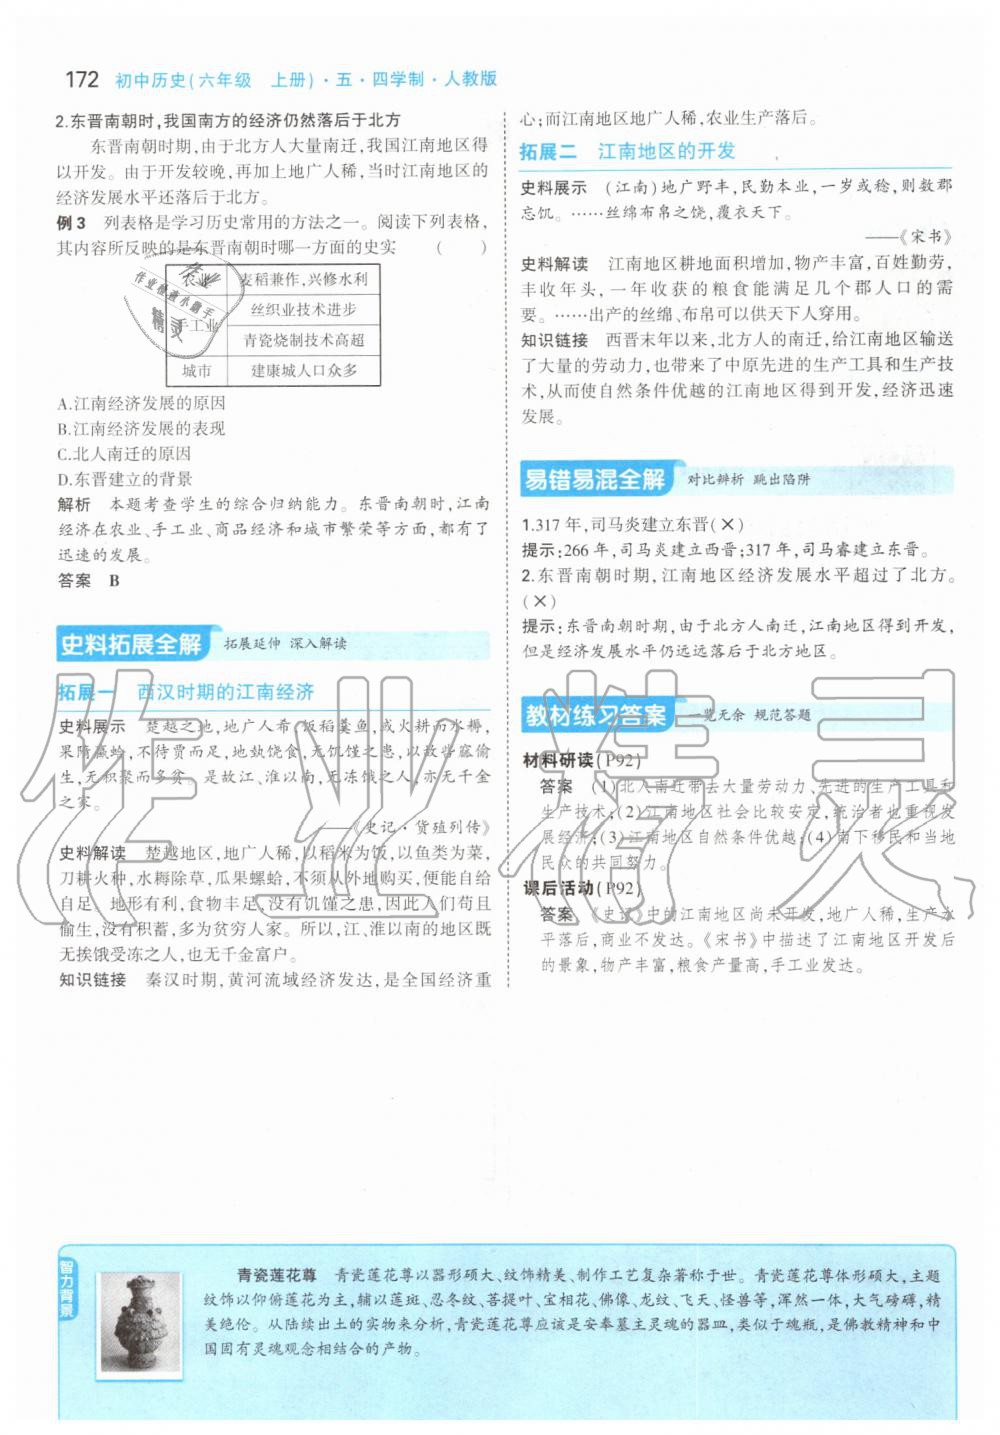 172 初中历史(六年级 上册)·五·四学制·人教版
2.东晋南朝时,我国南方的经济仍然落后于北方
东晋南朝时期,由于北方人大量南迁,我国江南地区得
以开发。由于开发较晚,再加上地广人稀,当时江南地区的
经济发展水平还落后于北方。
例3 列表格是学习历史常用的方法之一。阅读下列表格,
其内容所反映的是东晋南朝时哪一方面的史实 ( )
农业 麦稻兼作,兴修水利
手工业 丝织业技术进步
青瓷烧制技术高超
城市 建康城人口众多
A.江南经济发展的原因
B.江南经济发展的表现
C.北人南迁的原因
D.东晋建立的背景
解析 本题考查学生的综合归纳能力。东晋南朝时,江南
经济在农业、手工业、商品经济和城市繁荣等方面,都有了
迅速的发展。
答案 B
史料拓展全解 拓展延伸 深入解读
拓展一 西汉时期的江南经济
史料展示 楚越之地,地广人希,饭稻羹鱼,或火耕而水耨,
果隋蠃蛤,不待贾而足,地埶饶食,无饥馑之患,以故呰窳偷
生,无积聚而多贫。是故江、淮以南,无冻饿之人,亦无千金
之家。
——《史记·货殖列传》
史料解读 楚越地区,地广人稀,以稻米为饭,以鱼类为菜,
刀耕火种,水耨除草,瓜果螺蛤,不须从外地购买,便能自给
自足。地形有利,食物丰足,没有饥馑之患,因此人们苟且
偷生,没有积蓄,多为贫穷人家。所以,江、淮以南的地区既
无挨饿受冻之人,也无千金富户。
知识链接 秦汉时期,黄河流域经济发达,是全国经济重
心;而江南地区地广人稀,农业生产落后。
拓展二 江南地区的开发
史料展示 (江南)地广野丰,民勤本业,一岁或稔,则数郡
忘饥。……丝绵布帛之饶,覆衣天下。
——《宋书》
史料解读 江南地区耕地面积增加,物产丰富,百姓勤劳,
丰收年头,一年收获的粮食能满足几个郡人口的需
要。……出产的丝绵、布帛可以供天下人穿用。
知识链接 西晋末年以来,北方人的南迁,给江南地区输送
了大量的劳动力,也带来了中原先进的生产工具和生产技
术,从而使自然条件优越的江南地区得到开发,经济迅速
发展。
易错易混全解 对比辨析 跳出陷阱
1.317年,司马炎建立东晋(×)
提示:266年,司马炎建立西晋;317年,司马睿建立东晋。
2.东晋南朝时期,江南地区经济发展水平超过了北方。
(×)
提示:东晋南朝时期,由于北方人南迁,江南地区得到开发,
但是经济发展水平仍远远落后于北方地区。
教材练习答案 一览无余 规范答题
材料研读(P92)
答案 (1)北人南迁带去大量劳动力、先进的生产工具和
生产技术;(2)江南地区社会比较安定,统治者也重视发
展经济;(3)江南地区自然条件优越;(4)南下移民和当地
民众的共同努力。
课后活动(P92)
答案 《史记》中的江南地区尚未开发,地广人稀,生产水
平落后,商业不发达。《宋书》中描述了江南地区开发后
的景象,物产丰富,粮食产量高,手工业发达。
智力背景
青瓷莲花尊 青瓷莲花尊以器形硕大、纹饰精美、制作工艺复杂著称于世。青瓷莲花尊体形硕大,主题
纹饰以仰俯莲花为主,辅以莲斑、忍冬纹、菩提叶、宝相花、佛像、龙纹、飞天、怪兽等,浑然一体,大气磅礴,精
美绝伦。从陆续出土的实物来分析,青瓷莲花尊应该是安奉墓主灵魂的器皿,类似于魂瓶,是佛教精神和中
国固有灵魂观念相结合的产物。
作业精灵
作业
作业检查小助手
精灵